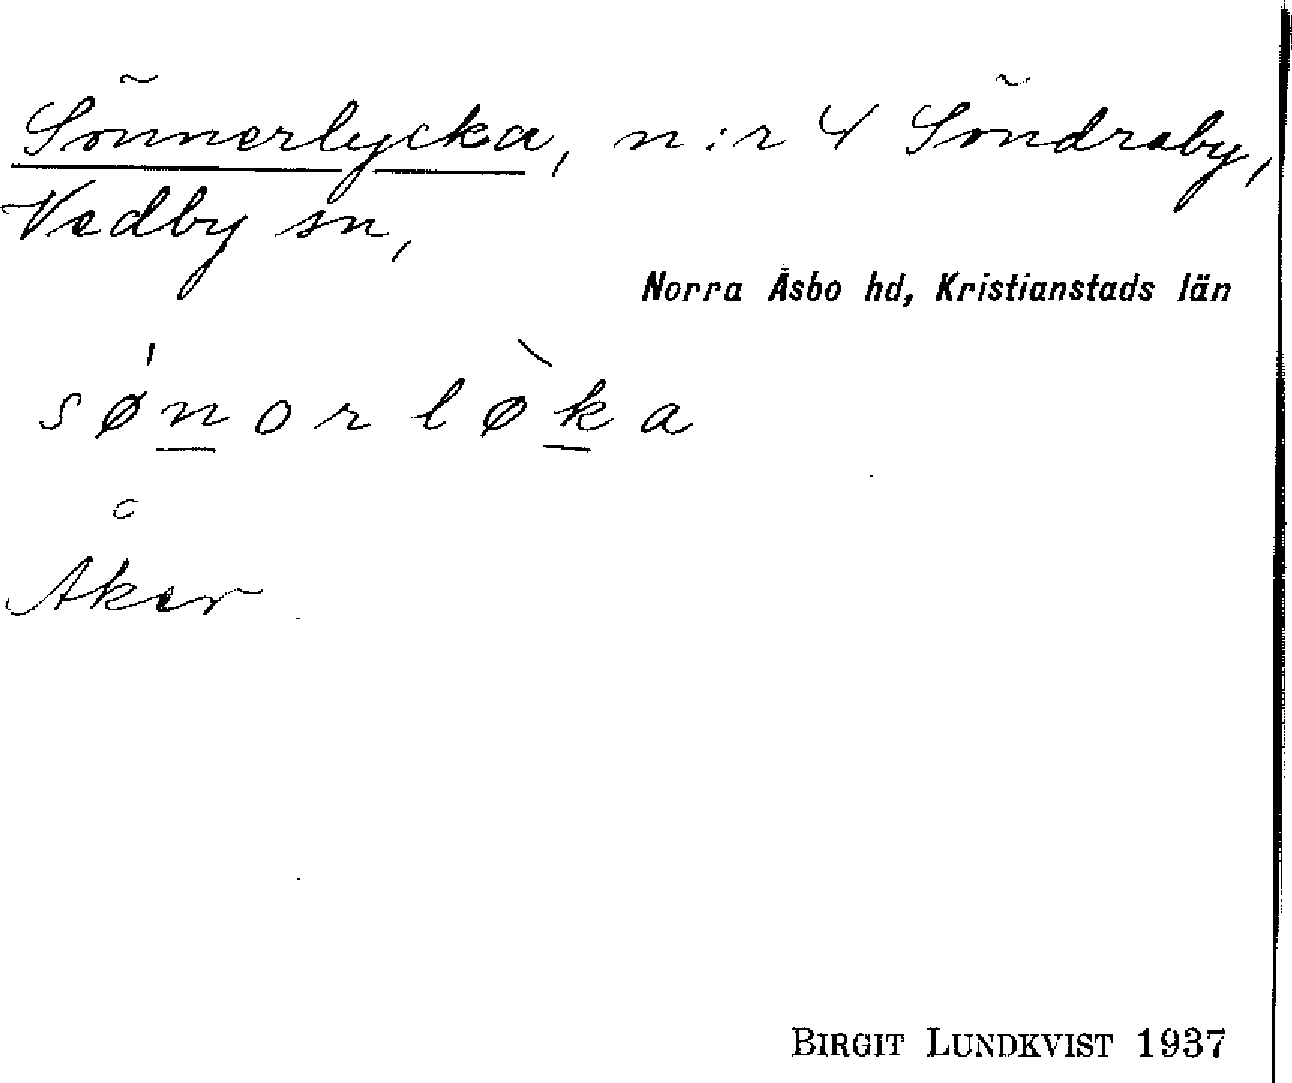 Sönnerlycka, n:r 4 Söndraby,
Vedby sn,
Norra Åsbo hd, Kristianstads län
sǿnorlø̀ka
Åker
BIRGIT LUNDKVIST 1937